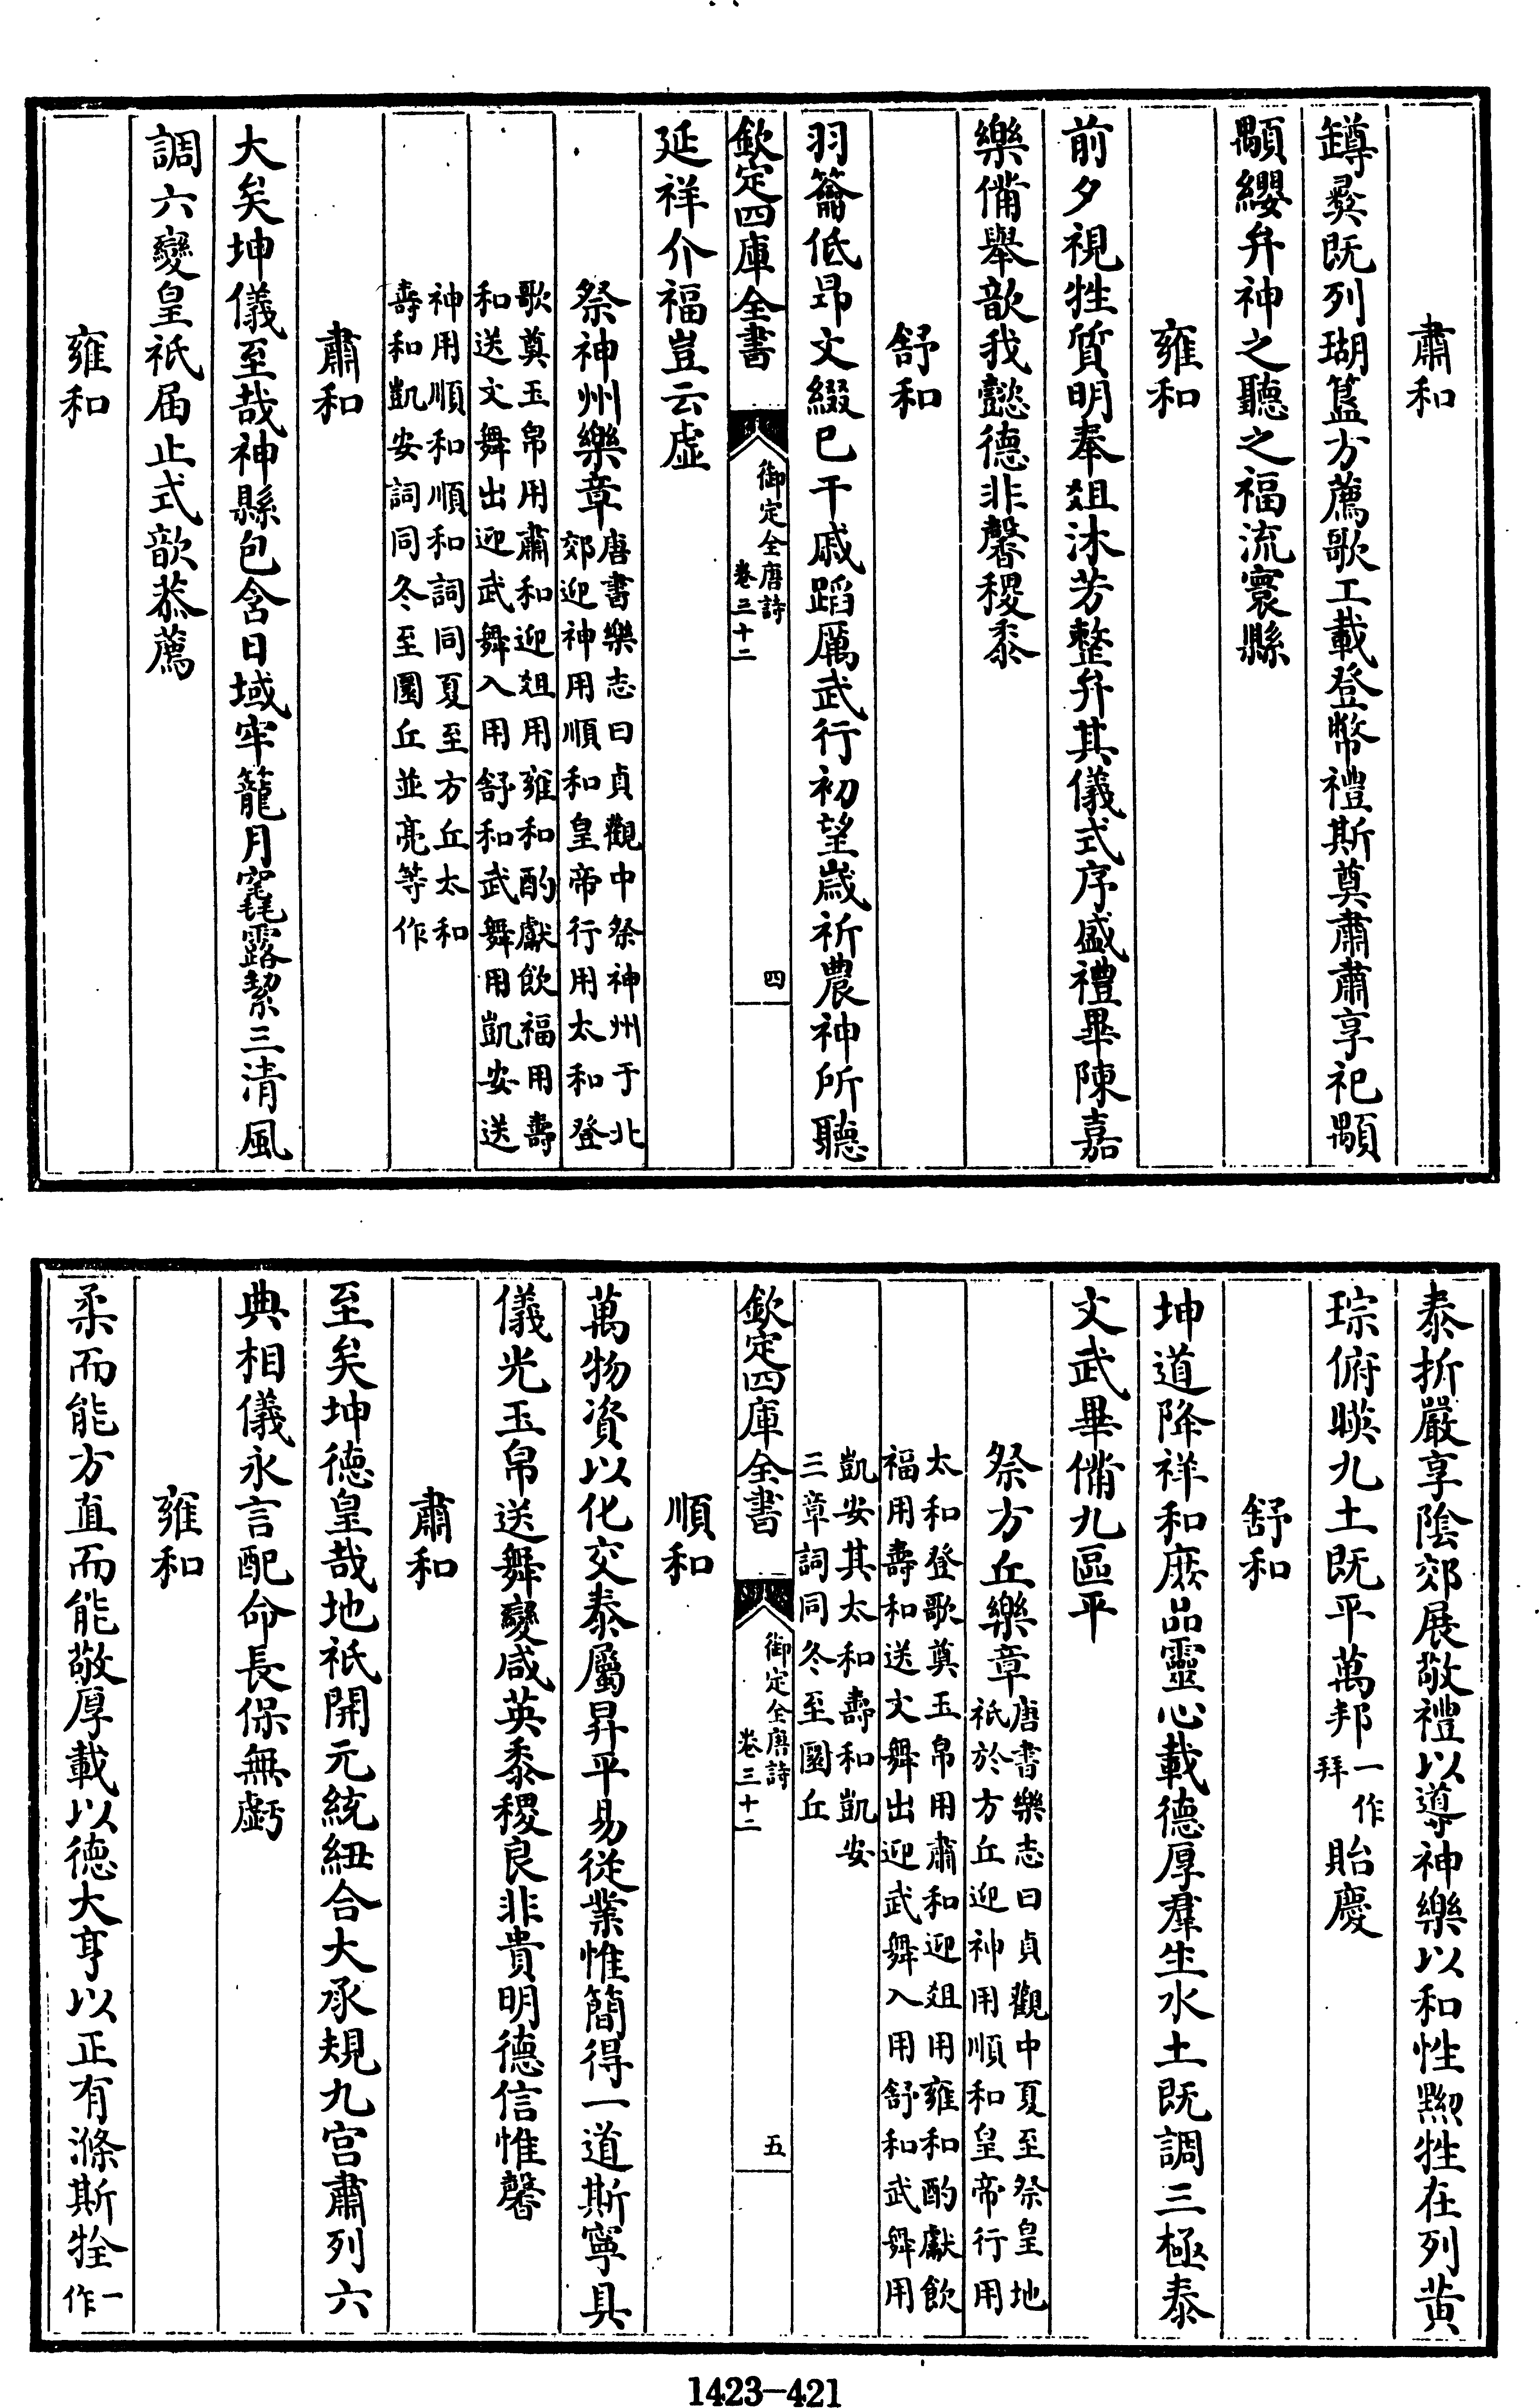 肅和
罇彛既列瑚簋方薦歌工載登幣禮斯奠肅肅享祀顒
顒纓弁神之聽之福流寰縣
雍和
前夕視牲質明奉俎沐芳整弁其儀式序盛禮畢陳嘉
樂備舉歆我懿德非馨稷黍
舒和
羽籥低昂文綴已干戚蹈厲武行初望歲祈農神所聽
延祥介福豈云虛
欽定四庫全書
御定全唐詩
卷三十二
四
祭神州樂章
唐書樂志曰貞觀中祭神州于北
郊迎神用順和皇帝行用太和登
歌奠玉帛用肅和迎俎用雍和酌獻飲福用壽
和送文舞出迎武舞入用舒和武舞用凱安送
神用順和順和詞同夏至方丘太和
壽和凱安詞同冬至圜丘並亮等作
肅和
大矣坤儀至哉神縣包含日域牢籠月竁露絜三清風
調六變皇祇届止式歆恭薦
雍和
泰折嚴享陰郊展敬禮以導神樂以和性黝牲在列黄
琮俯暎九土既平萬邦
一作
拜
貽慶
舒和
坤道降祥和庶品靈心載德厚羣生水土既調三極泰
文武畢備九區平
祭方丘樂章
唐書樂志曰貞觀中夏至祭皇地
祇於方丘迎神用順和皇帝行用
太和登歌奠玉帛用肅和迎俎用雍和酌獻飲
福用壽和送文舞出迎武舞入用舒和武舞用
凱安其太和壽和凱安
三章詞同冬至圜丘
欽定四庫全書
御定全唐詩
卷三十二
五
順和
萬物資以化交泰屬昇平易從業惟簡得一道斯寧具
儀光玉帛送舞變咸英黍稷良非貴明德信惟馨
肅和
至矣坤德皇哉地祇開元統紐合大承規九宫肅列六
典相儀永言配命長保無虧
雍和
柔而能方直而能敬厚載以德大亨以正有滌斯牷
一
作
1423-421